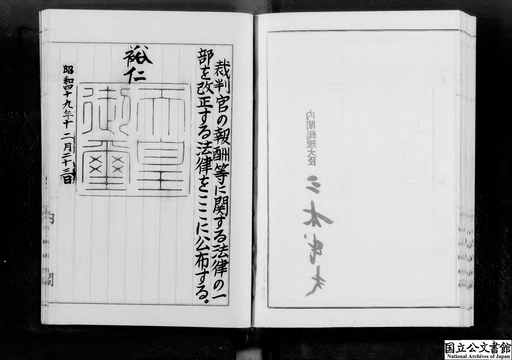 内閣総理大臣
三木武夫
裁判官の報酬等に関する法律の一
部を改正する法律をここに公布する。
裕仁
天皇
御璽
昭和四十九年十二月二十三日
内閣
国立公文書館
National Archives of Japan